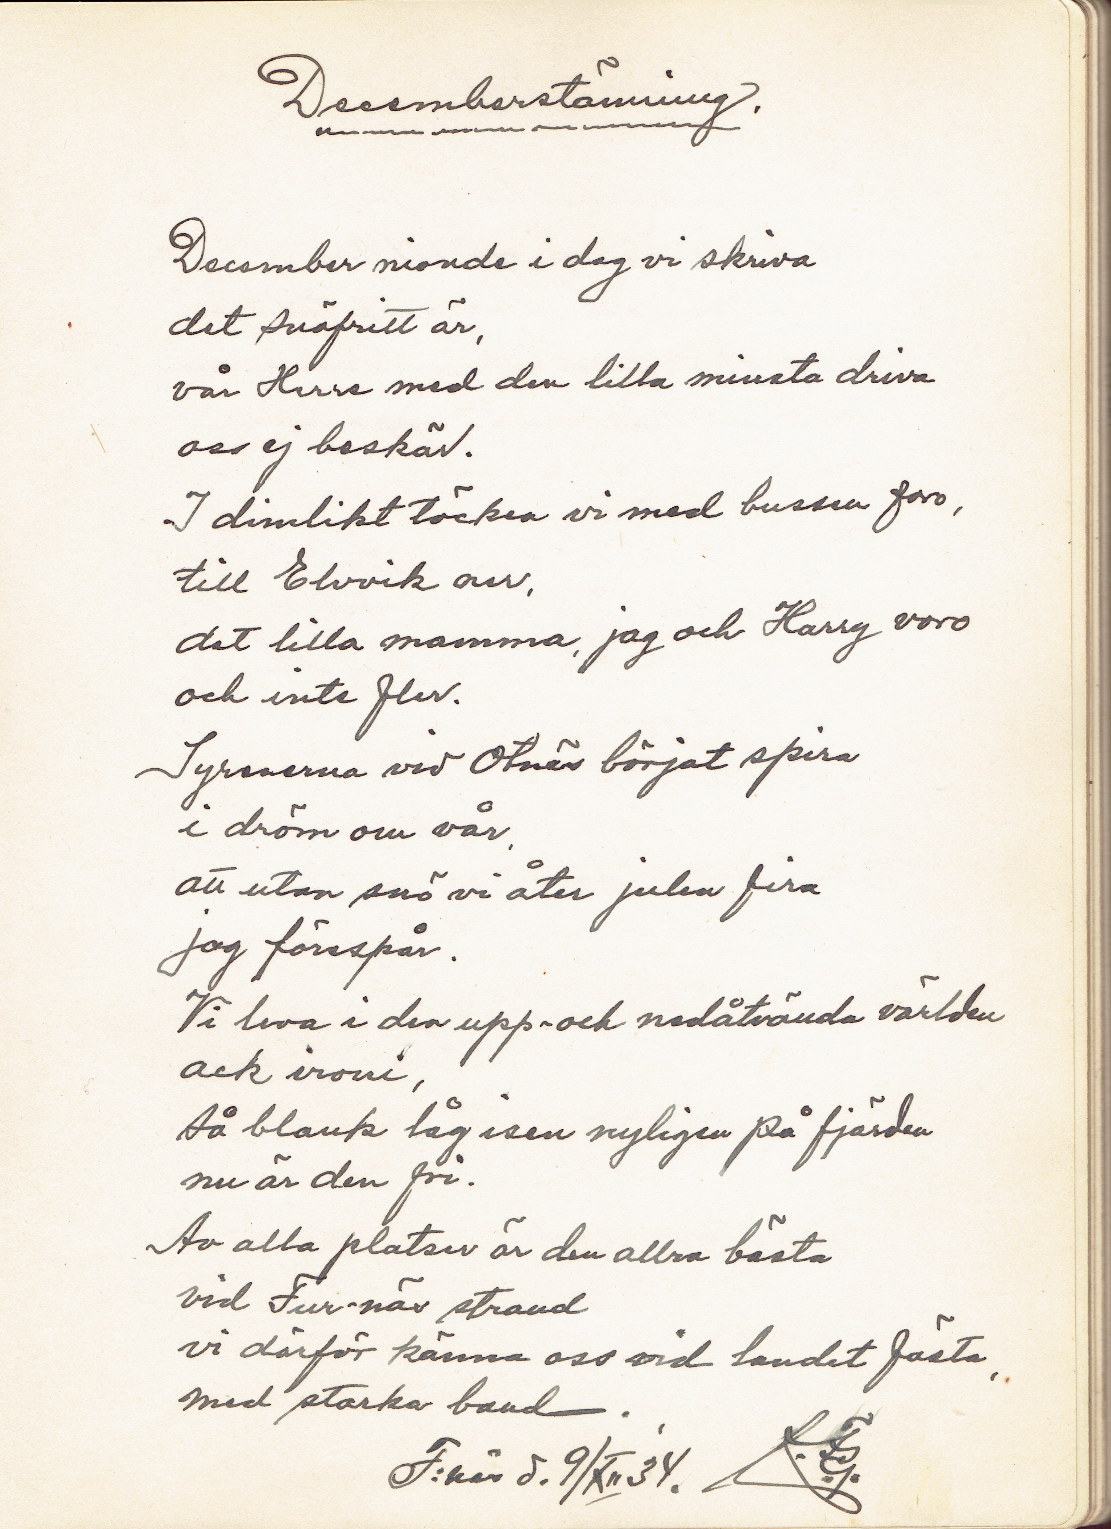 Decemberstämning.
December nionde i dag vi skriva
det snöfritt är,
vår Herre med den lilla minsta driva
oss ej beskär.
I dimlikt töcken vi med bussen foro,
till Elvvik ner,
det lilla mamma, jag och Harry voro
och inte fler.
Syrenerna vid Otnäs börjat spira
i dröm om vår,
att utan snö vi åter julen fira
jag förespår.
Vi leva i den upp- och nedåtvända världen
ack ironi,
så blank låg isen nyligen på fjärden
nu är den fri.
Av alla platser är den allra bästa
vid Fur-näs strand
vi därför känna oss vid landet fästa,
med starka band.
F:näs d. 9/XII 34.